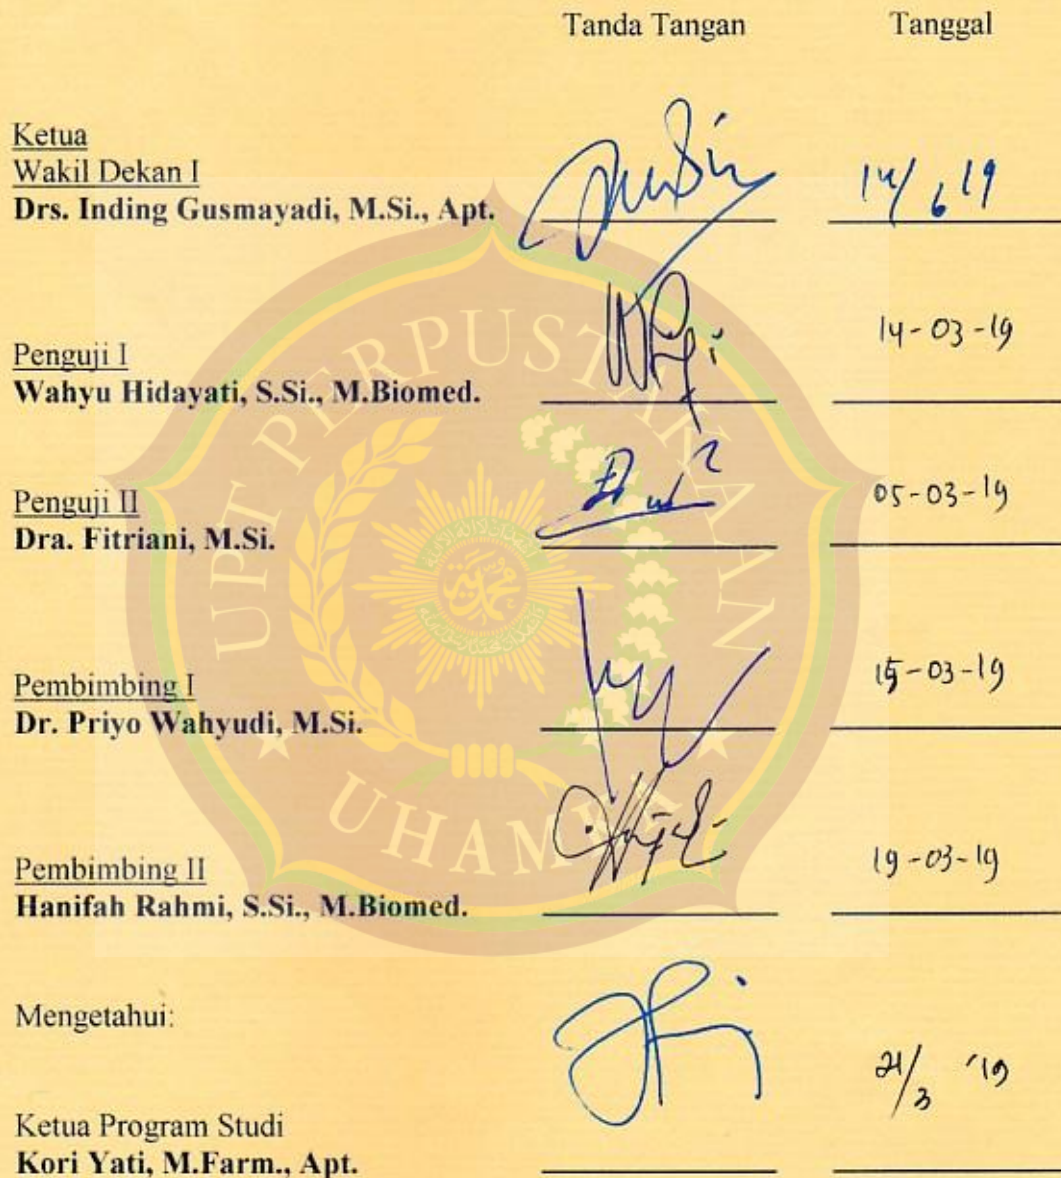 Tanda Tangan Tanggal
Ketua
Wakil Dekan I
Drs. Inding Gusmayadi, M.Si., Apt. 14/6 19
Penguji I 14-03-19
Wahyu Hidayati, S.Si., M.Biomed.
Penguji II 05-03-19
Dra. Fitriani, M.Si.
Pembimbing I 15-03-19
Dr. Priyo Wahyudi, M.Si.
Pembimbing II 19-03-19
Hanifah Rahmi, S.Si., M.Biomed.
Mengetahui:
21/3 '19
Ketua Program Studi
Kori Yati, M.Farm., Apt.
UPT PERPUSTAKAAN
UHAMKA